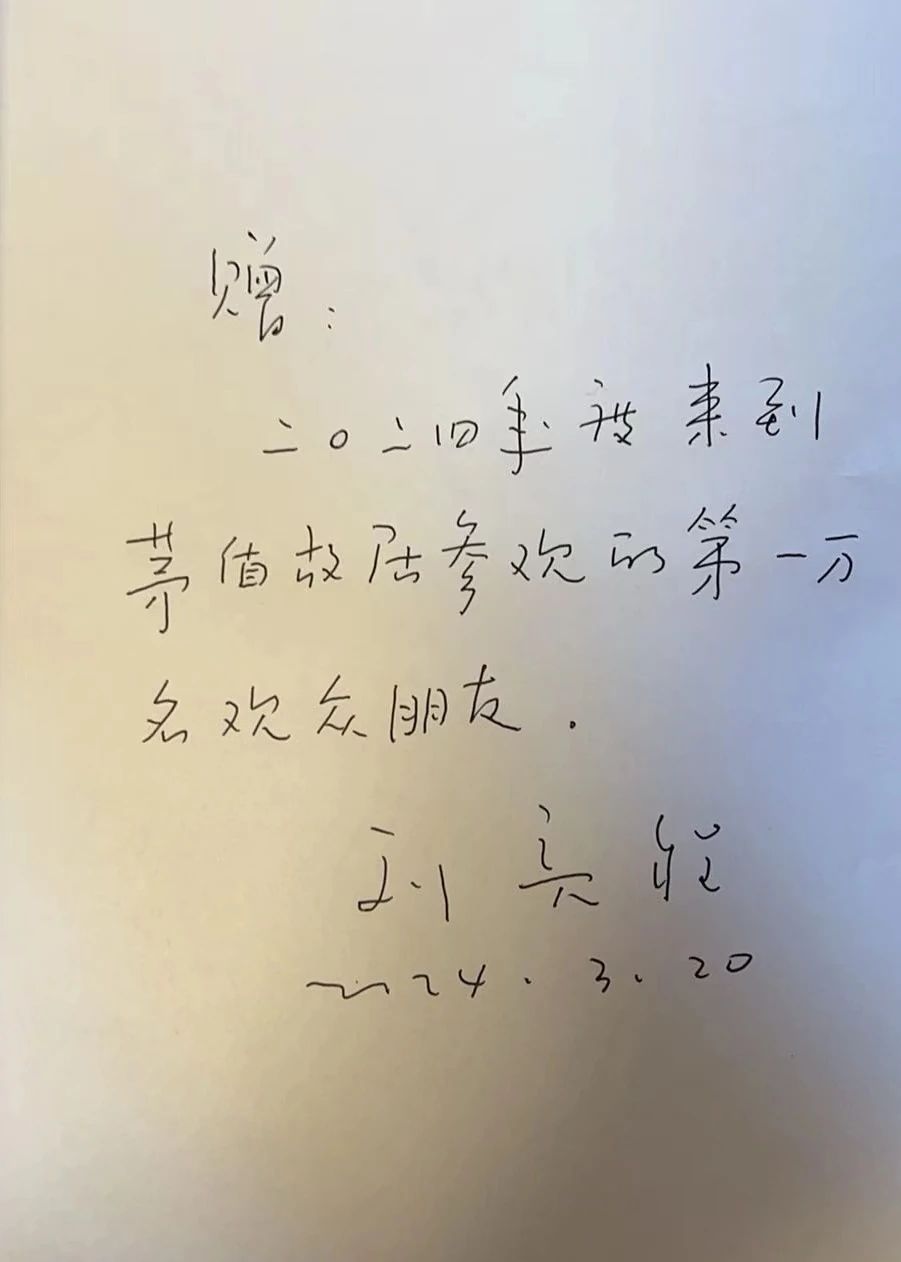 赠:
二〇二四年度来到
茅盾故居参观的第一万
名观众朋友.
刘亮程
2024.3.20